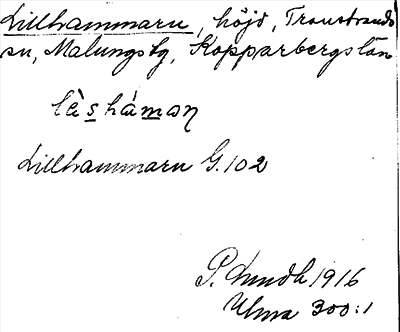 Lillhammarn, höjd, Transtrands
sn, Malungs tg, Kopparbergs län
Lillhammarn G. 102
P. Lundh 1916
Ulma 300:1